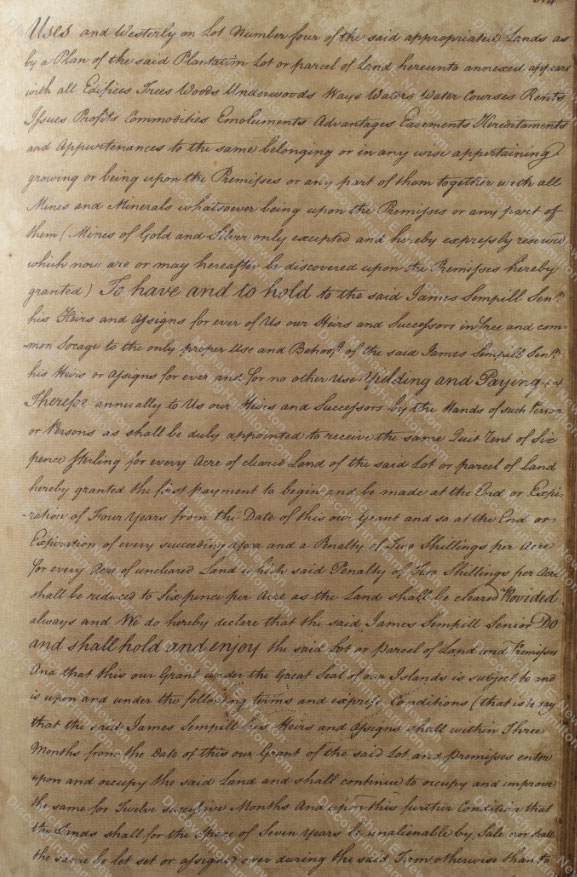 Uses and Westerly on Lot Number four of the said appropriated Lands as
by a Plan of the said Plantation Lot or parcel of Land hereunto annexed appears
with all Edifices Trees Woods Underwoods Ways Waters Water Courses Rents
Issues Profits Commodities Emoluments Advantages Easements Hereditaments
and Appurtenances to the same belonging or in any wise appertaining
growing or being upon the Premisses or any part of them together with all
Mines and Minerals whatsoever being upon the Premisses or any part of
them (Mines of Gold and Silver only excepted and hereby expressly reserved
which now are or may hereafter be discovered upon the Premisses hereby
granted) To have and to hold to the said James Sempill Senr.
his Heirs and Assigns for ever of Us our Heirs and Successors in free and com-
mon Socage to the only proper Use and Behoof of the said James Sempill Senr.
his Heirs or Assigns for ever and for no other Use Yielding and Paying
Therefor annually to Us our Heirs and Successors by the Hands of such Person
or Persons as shall be duly appointed to receive the same Quit Rent of Six
pence Sterling for every Acre of cleared Land of the said Lot or parcel of Land
hereby granted the first payment to begin and be made at the End or Expi-
-ration of Four Years from the Date of this our Grant and so at the End or
Expiration of every succeeding Year and a Penalty of Two Shillings per Acre
for every Acre of uncleared Land which said Penalty of Two Shillings per Acre
shall be reduced to Six pence per Acre as the Land shall be cleared Provided
always and We do hereby declare that the said James Sempill Senior Do
and shall hold and enjoy the said Lot or Parcel of Land and Premisses
And that this our Grant under the Great Seal of our Islands is subject to and
is upon and under the following terms and express Conditions (that is to say
that the said James Sempill his Heirs and Assigns shall within Three
Months from the Date of this our Grant of the said Lot and Premisses enter
upon and occupy the said Land and shall continue to occupy and improve
the same for Twelve successive Months And upon this further Condition that
the Lands shall for the Space of Seven Years be unalienable by Sale nor shall
the same be let set or assigned over during the said Term otherwise than to
Dicocochinea E. Newton
DicocochineaENewtonHamilton.Com